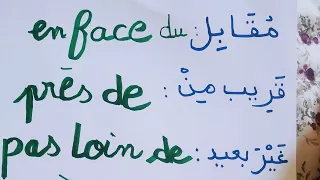 en face du : مُقَابِل
près de : قَرِيب مِنْ
pas loin de : غَيْرَ بعيد